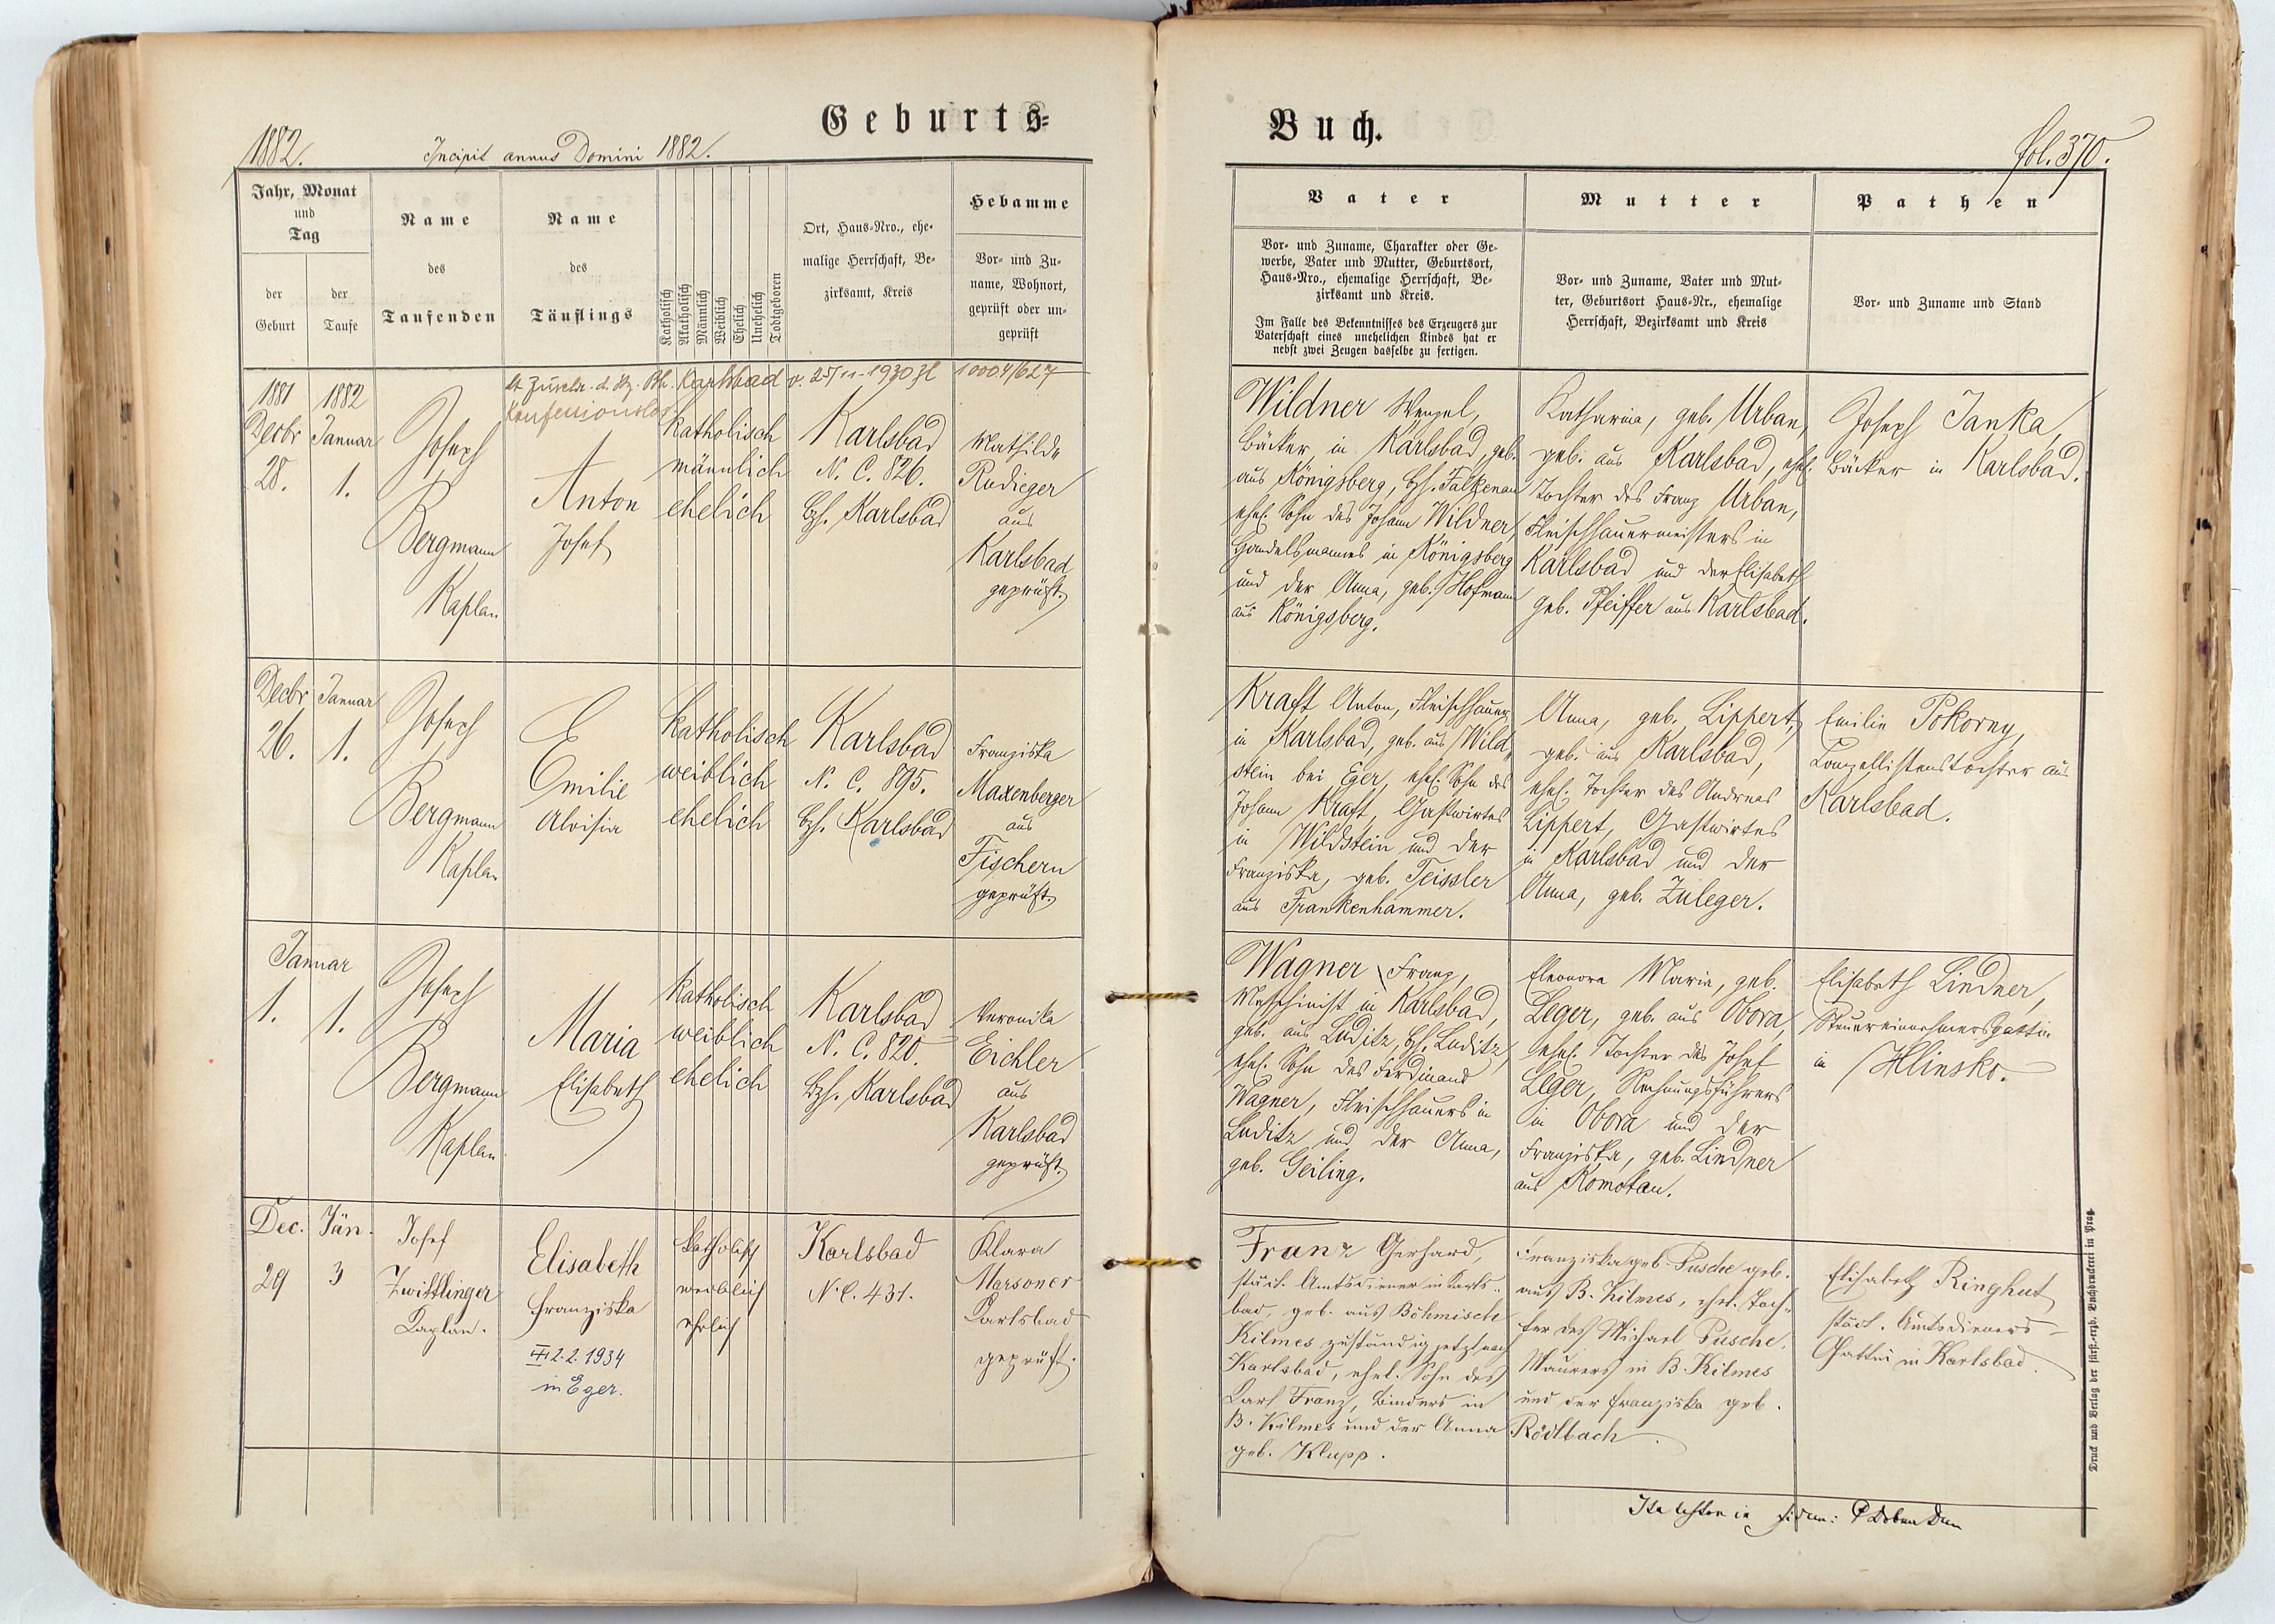 Geburts-
1882.
Incipit annus Domini 1882.
Jahr, Monat
und
Tag
der
Geburt
der
Taufe
Name
des
Taufenden
Name
des
Täuflings
Katholisch
Akatholisch
Männlich
Weiblich
Ehelich
Unehelich
Todtgeboren
Ort, Haus-Nro., ehe-
malige Herrschaft, Be-
zirksamt, Kreis
Hebamme
Vor- und Zu-
name, Wohnort,
geprüft oder un-
geprüft
Karlsbad v. 25/11-1930 Zl 10004/627
Konfessionslos
1881
Decbr
28.
1882
Januar
1.
Joseph
Bergmann
Kaplan
Anton
Josef
katholisch
männlich
ehelich
Karlsbad
N. C. 826.
Bzh. Karlsbad
Mathilde
Rudieger
aus
Karlsbad
geprüft.
Decbr
26.
Januar
1.
Joseph
Bergmann
Kaplan
Emilie
Aloisia
katholisch
weiblich
ehelich
Karlsbad
N. C. 895.
Bzh. Karlsbad
Franziska
Maxenberger
aus
Fischern
geprüft
Januar
1.
1.
Joseph
Bergmann
Kaplan
Maria
Elisabeth
katholisch
weiblich
ehelich
Karlsbad
N. C. 820.
Bzh. Karlsbad
Veronika
Eichler
aus
Karlsbad
geprüft.
Dec.
29
Jän.
3
Josef
Zwittlinger
Caplan.
Elisabeth
Franziska
2.2.1934
in Eger.
katholisch
weiblich
ehelich
Karlsbad
N.C. 431.
Klara
Marsoner
Karlsbad
geprüft.
Buch.
fol. 370.
Vater
Vor- und Zuname, Charakter oder Ge-
werbe, Vater und Mutter, Geburtsort,
Haus-Nro., ehemalige Herrschaft, Be-
zirksamt und Kreis.
Im Falle des Bekenntnisses des Erzeugers zur
Vaterschaft eines unehelichen Kindes hat er
nebst zwei Zeugen dasselbe zu fertigen.
Mutter
Vor- und Zuname, Vater und Mut-
ter, Geburtsort Haus-Nr., ehemalige
Herrschaft, Bezirksamt und Kreis
Pathen
Vor- und Zuname und Stand
Wildner Wenzel,
Bäcker in Karlsbad, geb.
aus Königsberg, Bzh. Falkenau
ehel. Sohn des Johann Wildner,
Handelsmannes in Königsberg
und der Anna, geb. Hofmann
aus Königsberg.
Katharina, geb. Urban,
geb. aus Karlsbad, ehel.
Tochter des Franz Urban,
Fleischhauermeisters in
Karlsbad und der Elisabeth
geb. Pfeiffer aus Karlsbad.
Joseph Janka,
Bäcker in Karlsbad.
Kraft Anton, Fleischhauer
in Karlsbad, geb. aus Wild-
stein bei Eger, ehel. Sohn des
Johann Kraft, Gastwirtes
in Wildstein und der
Franziska, geb. Teissler
aus Frankenhammer.
Anna, geb. Lippert,
geb. aus Karlsbad,
ehel. Tochter des Andreas
Lippert, Gastwirtes
in Karlsbad und der
Anna, geb. Zuleger.
Emilie Pokorny,
Canzellistenstochter aus
Karlsbad.
Wagner Franz,
Maschinist in Karlsbad,
geb. aus Luditz, Bzh. Luditz,
ehel. Sohn des Ferdinand
Wagner, Fleischhauers in
Luditz und der Anna,
geb. Geiling.
Eleonora Maria, geb.
Leger, geb. aus Obora,
ehel. Tochter des Josef
Leger, Rechnungsführers
in Obora und der
Franziska, geb. Lindner
aus Komotau.
Elisabeth Lindner,
Steuereinnehmersgattin
in Hlinsko.
Franz Gerhard,
städt. Amtsdiener in Karls-
bad, geb. aus Böhmisch
Kilmes zuständig jetzt nach
Karlsbad, ehel. Sohn des
Karl Franz, Binders in
B. Kilmes und der Anna
geb. Klupp.
Franziska geb. Pusche geb.
aus B. Kilmes, ehel. Toch-
ter des Michael Pusche,
Maurers in B. Kilmes
und der Franziska geb.
Rödlbach.
Elisabeth Ringhut
städt. Amtsdieners-
Gattin in Karlsbad.
Druck und Verlag der fürst.-erzb. Buchdruckerei in Prag.